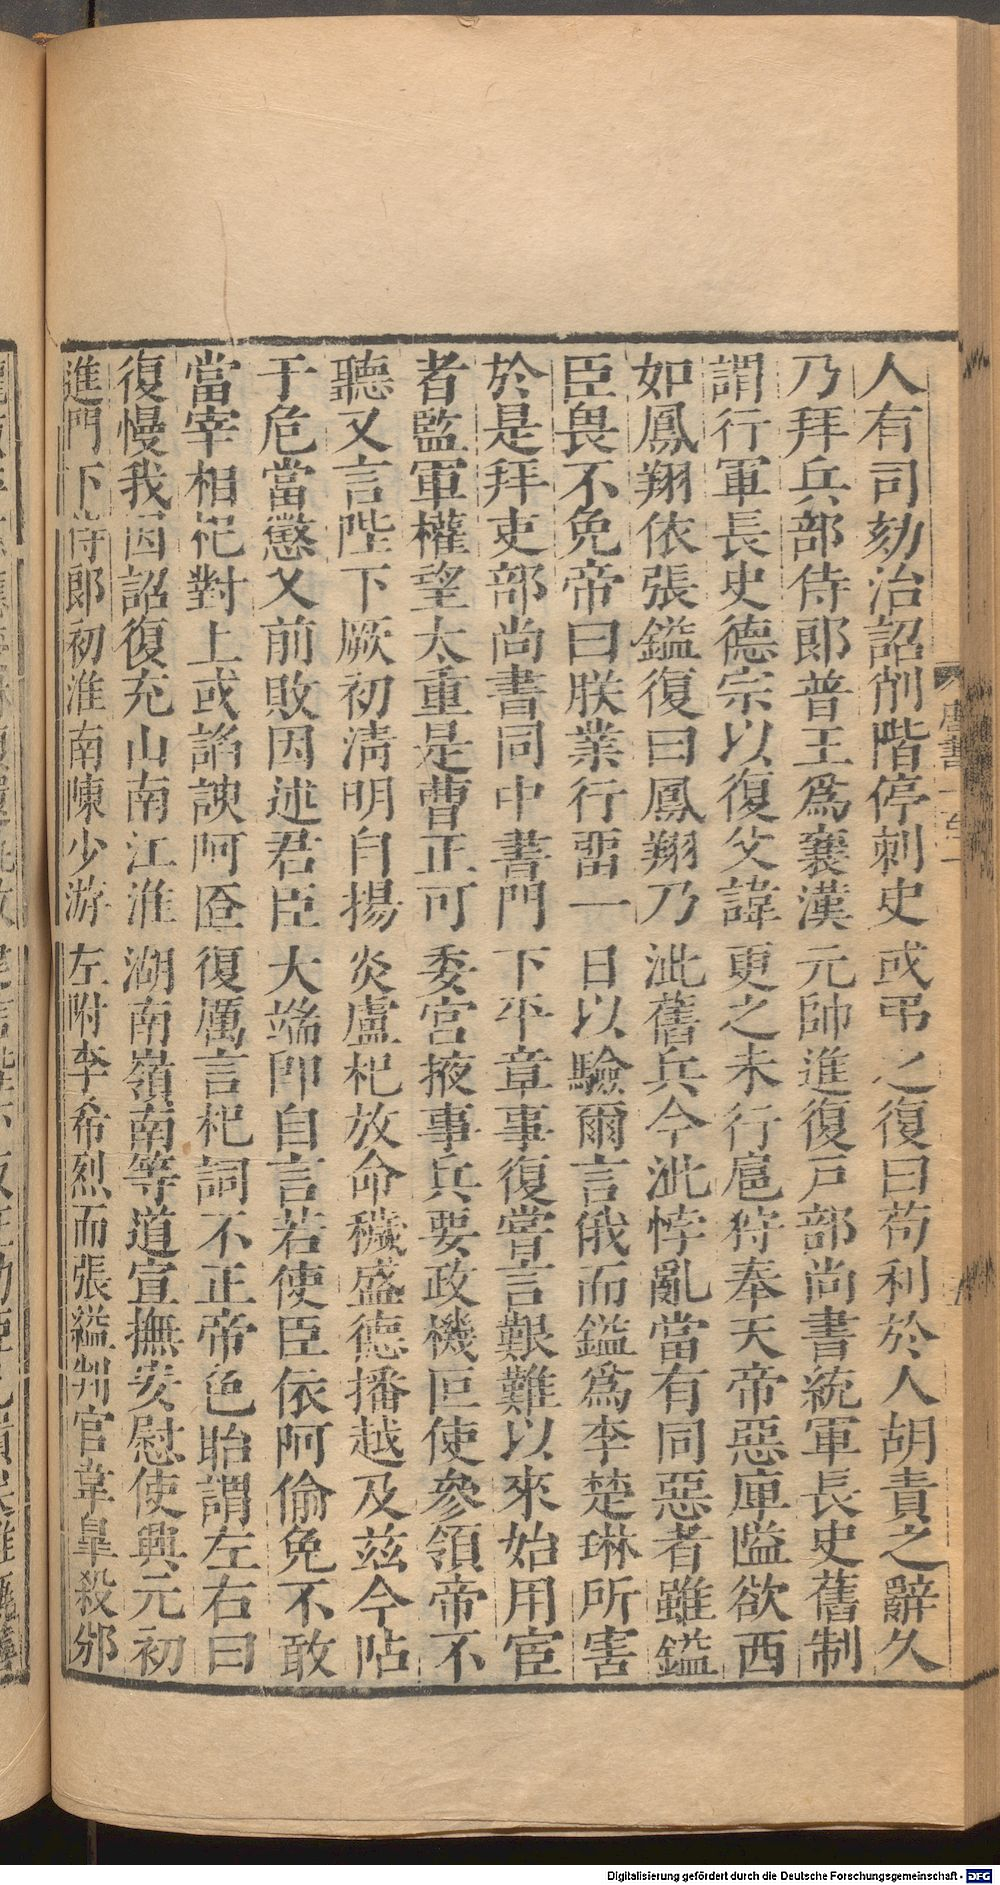 人有司劾治詔削階停刺史或弔之復曰苟利於人胡責之辭久
乃拜兵部侍郎普王爲襄漢元帥進復戸部尚書統軍長史舊制
謂行軍長史德宗以復父諱更之未行扈狩奉天帝惡庫隘欲西
如鳳翔依張鎰復曰鳳翔乃泚舊兵今泚悖亂當有同惡者雖鎰
臣畏不免帝曰朕業行畱一日以驗爾言俄而鎰爲李楚琳所害
於是拜吏部尚書同中書門下平章事復嘗言艱難以來始用宦
者監軍權望太重是曹正可委宮掖事兵要政機叵使參領帝不
聽又言陛下厥初淸明自揚炎盧杞放命穢盛德播越及兹今阽
于危當懲乂前敗因述君臣大端卽自言若使臣依阿偷免不敢
當宰相杞對上或諂諛阿匼復厲言杞詞不正帝色眙謂左右曰
復慢我因詔復充山南江淮湖南嶺南等道宣撫安慰使興元初
進門下侍郎初淮南陳少游左附李希烈而張鎰判官韋臯殺邠
Digitalisierung gefördert durch die Deutsche Forschungsgemeinschaft - DFG